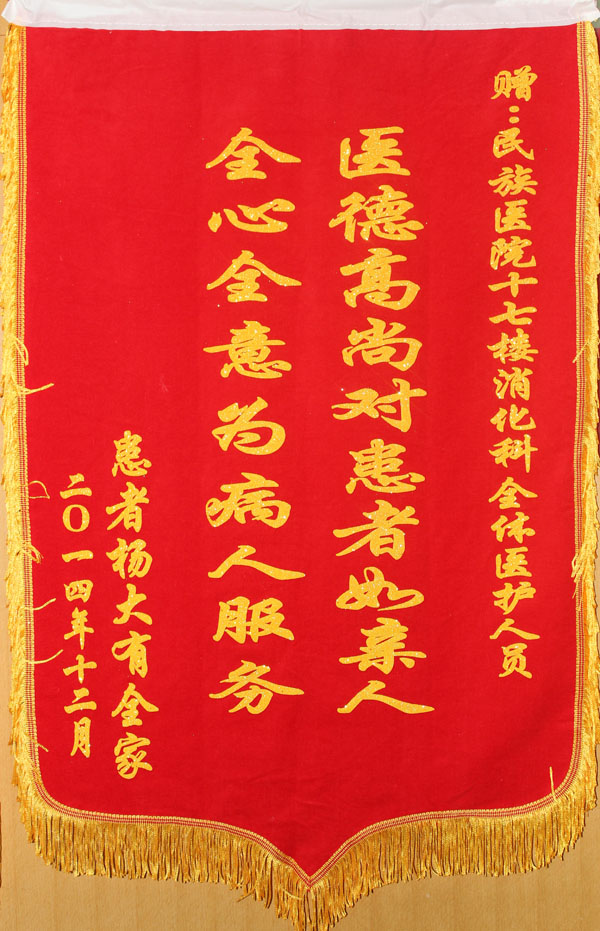 赠:民族医院十七楼消化科全体医护人员
医德高尚对患者如亲人
全心全意为病人服务
患者杨大有全家
二〇一四年十二月